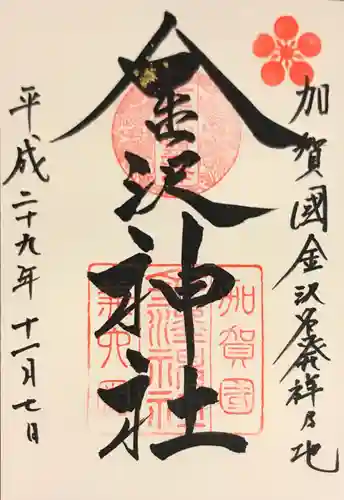 加賀國金沢名発祥乃地
金沢神社
加賀國
金澤神社
平成二十九年十一月七日